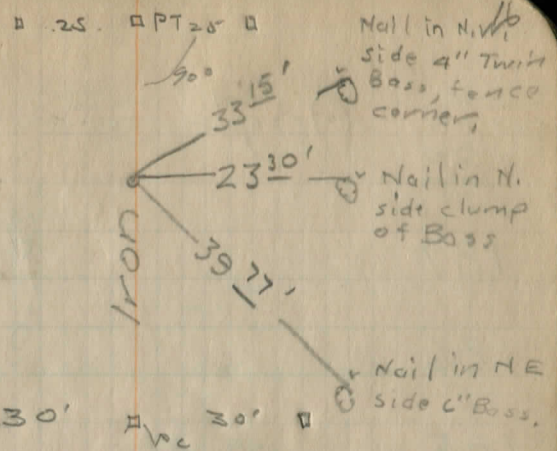 .25. PT 25
16
900
Nail in N.W.
side 4" Twin
Bass, fence
corner,
33 15'
23 30'
Nail in N.
side clump
of Bass
Iron
39 77'
Nail in NE
side 6" Bass.
30' 30'